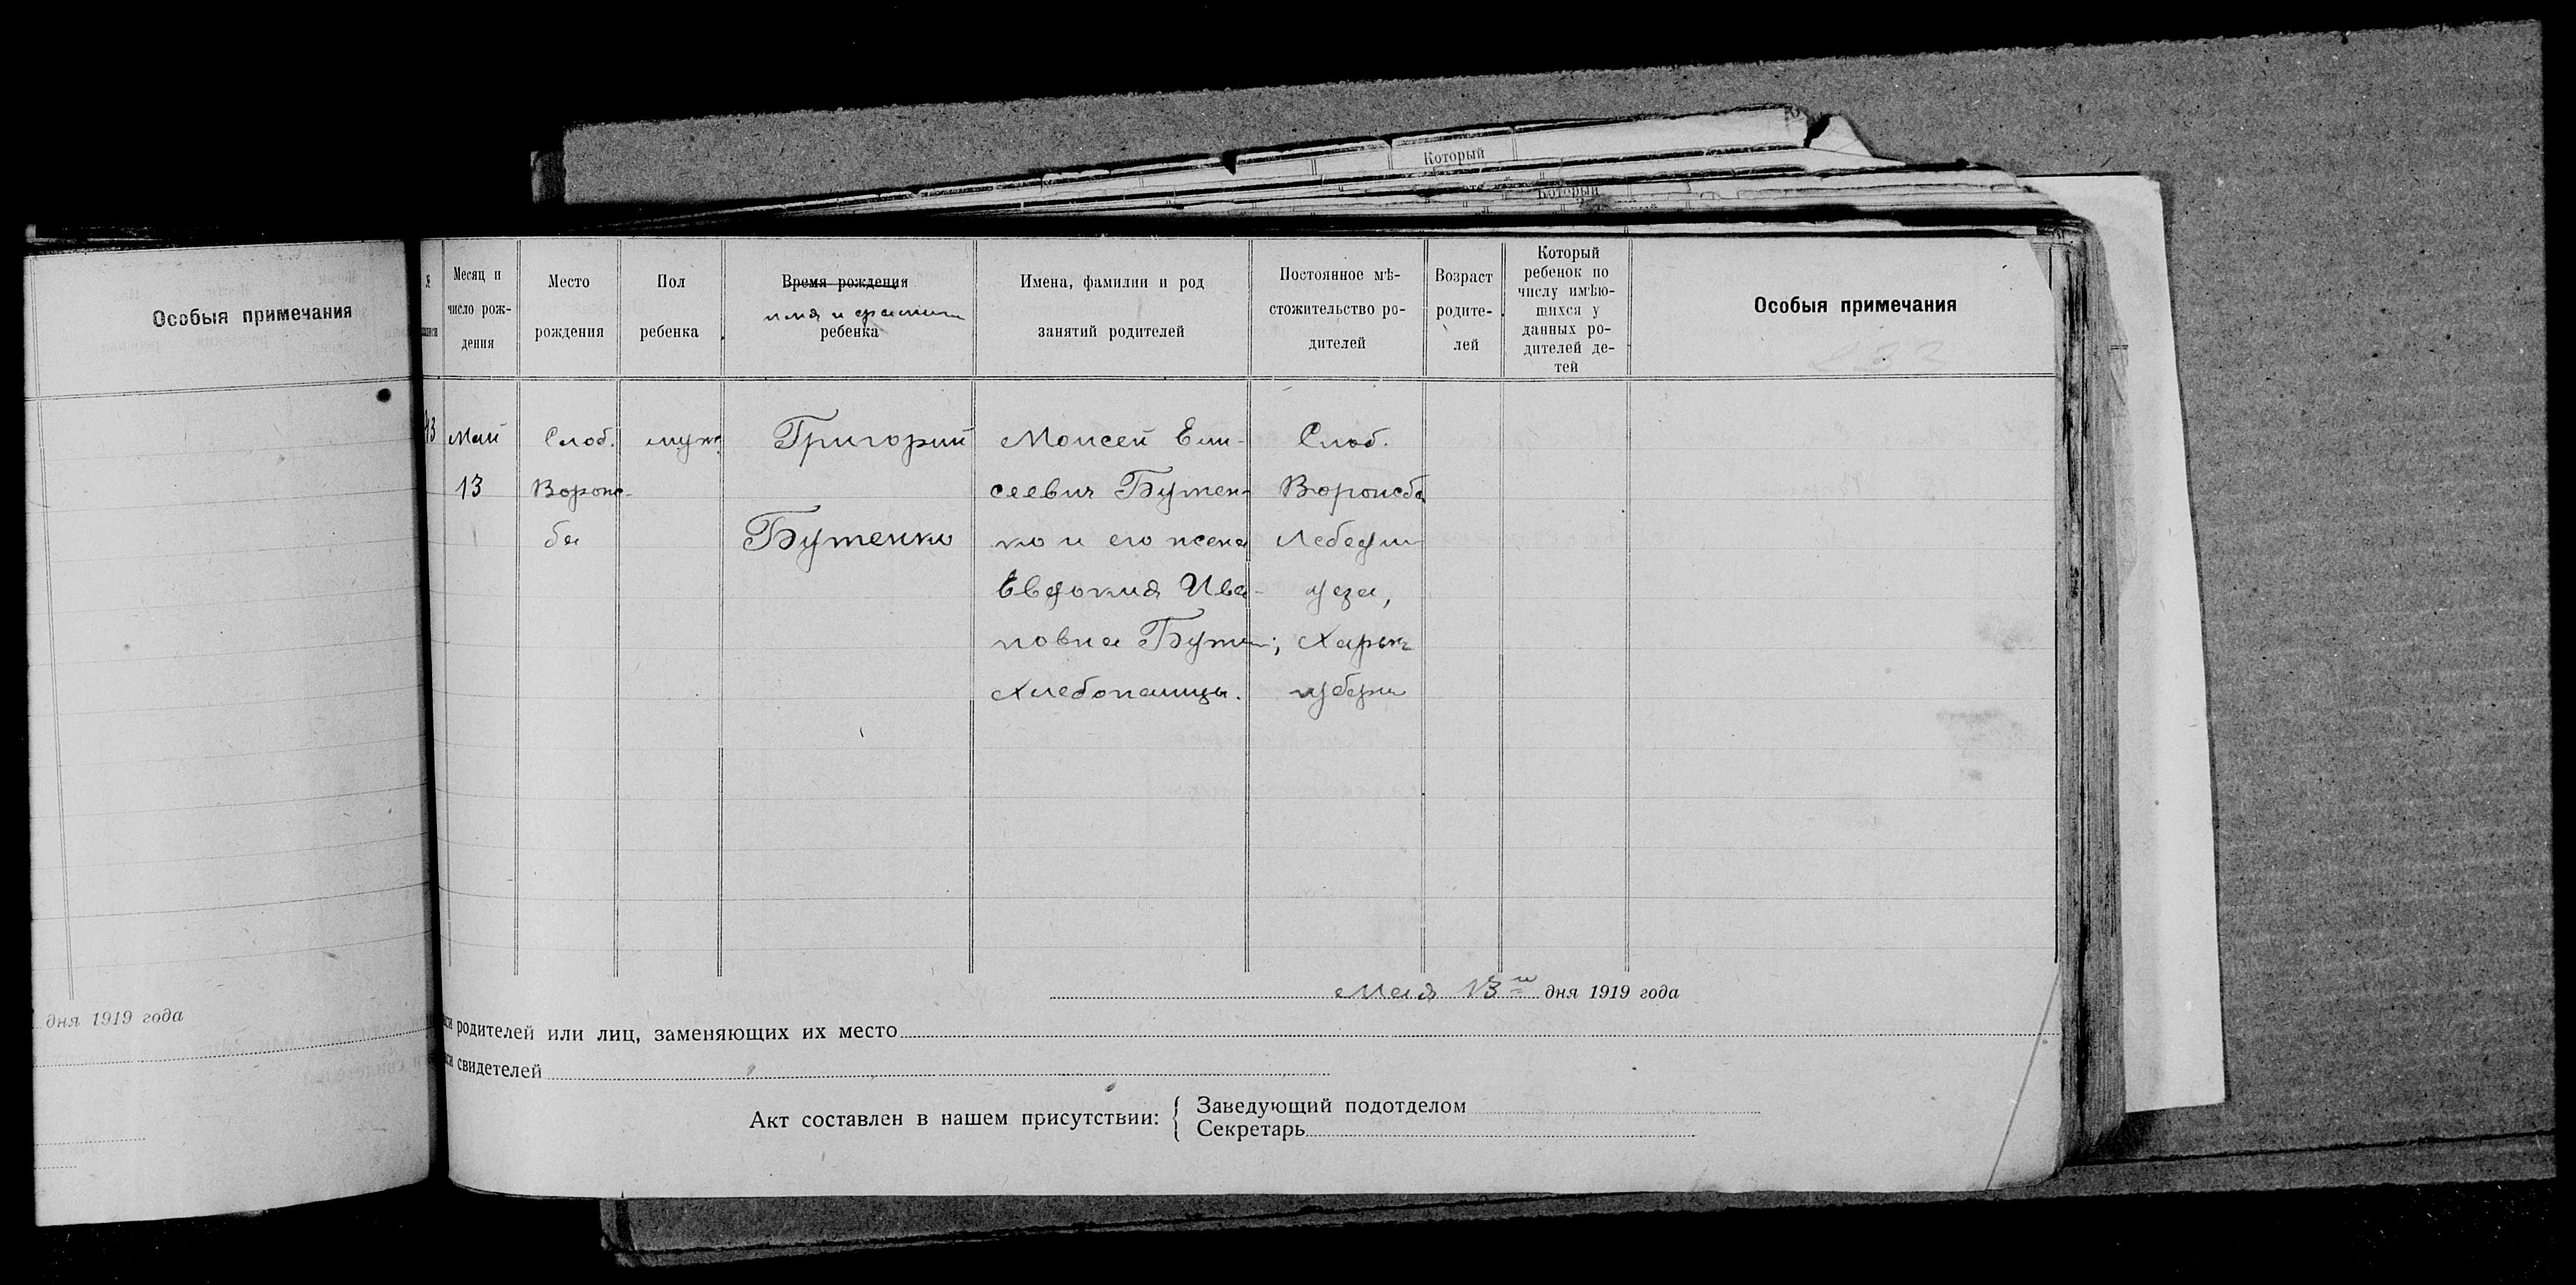 Который
Который
Особыя примечания
дня 1919 года
№
Месяц и
число рож-
дения
Место
рождения
Пол
ребенка
Время рождения
имя и фамил
ребенка
Имена, фамилии и род
занятий родителей
Постоянное мѣ-
стожительство ро-
дителей
Возраст
родите-
лей
Который
ребенок по
числу имѣю-
щихся у
данных ро-
дителей де-
тей
Особыя примечания
232
Май
13
Слоб.
Ворож-
ба
муж.
Григорий
Бутенко
Моисей Ели-
сеевич Бутен-
ко и его жена
Евдокия Ива-
новна Бутен;
Хлебопашцы.
Слоб.
Ворожба
Лебедин
уезд,
Харьк
губерн
Мая 13го дня 1919 года
родителей или лиц, заменяющих их место
свидетелей
Акт составлен в нашем присутствии:
Заведующий подотделом
Секретарь